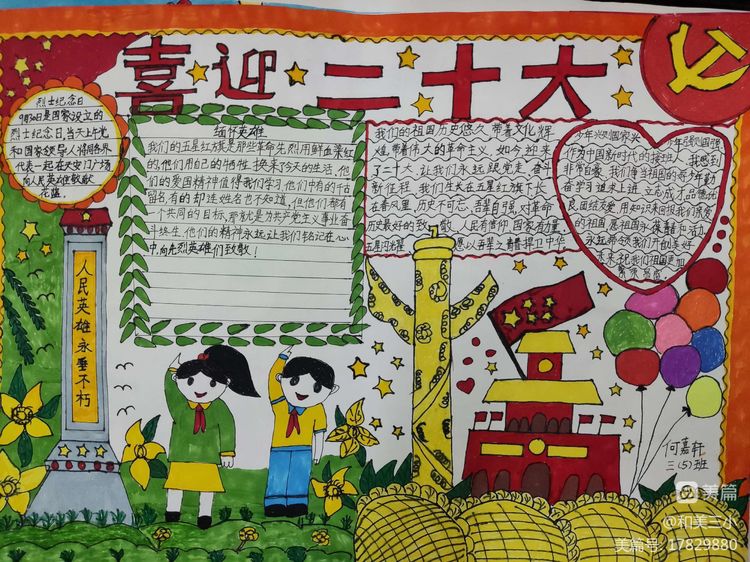 喜迎二十大
烈士纪念日
9月30日是国家设立的
烈士纪念日,当天上午党
和国家领导人将同各界
代表一起在天安门广场
向人民英雄敬献
花篮。
缅怀英雄
我们的五星红旗是那些革命先烈用鲜血染红
的,他们用自己的牺牲,换来了今天的生活,他
们的爱国精神值得我们学习,他们中有的千古
留名,有的却连姓名也不知道,但他们都有
一个共同的目标,那就是为共产党主义事业奋
斗终生,他们的精神永远让我们铭记在心
中,向先烈英雄们致敬!
我们的祖国历史悠久 带着文化辉
煌,带着伟大的革命主义 如今迎来
了二十大,让我们永远跟党走 奋进
新征程 我们生长在五星红旗下长
在春风里 历史不可忘 吾辈自强,对革命
历史最好的致敬 人民有信仰 国家有力量
五星闪光耀 愿以吾辈之青春捍卫中华
少年兴则国家兴 少年强则国强
作为中国新时代的接班人 我感到
非常自豪 我们争当祖国的好少年勤
奋学习追求上进 立志成才品德优
良团结友爱
人民英雄永垂不朽
何嘉轩
三(5)班
美篇
@和美三小
美篇号: 17829880